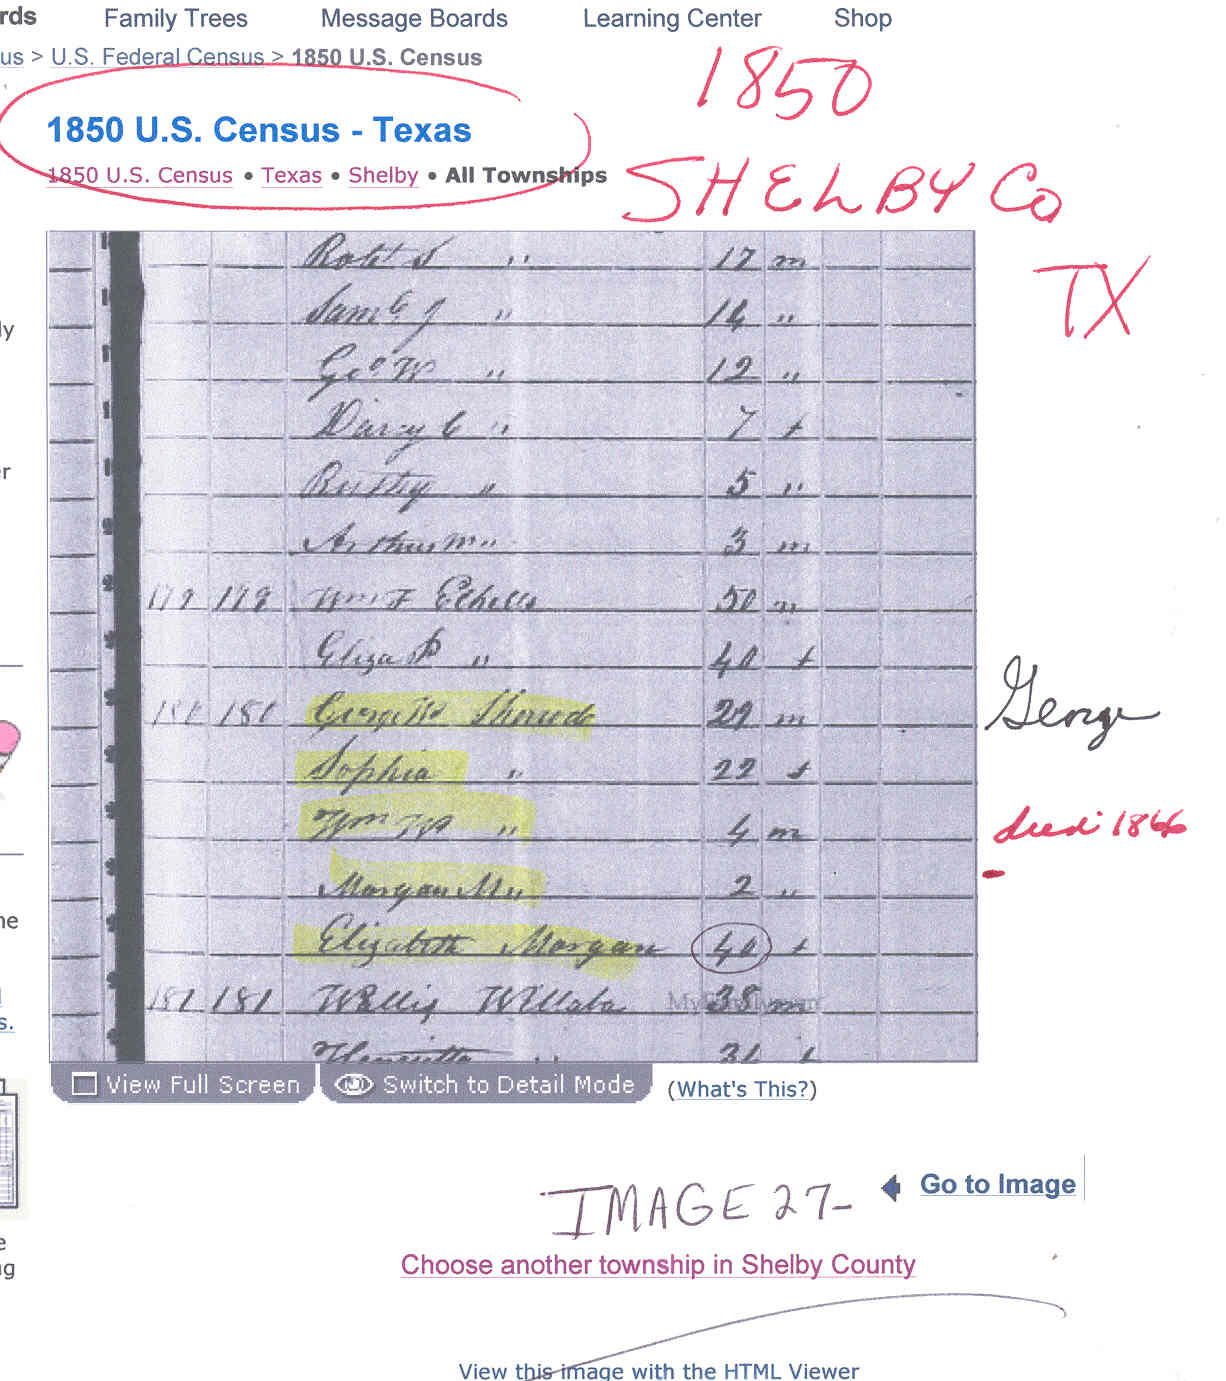 rds Family Trees Message Boards Learning Center Shop
us > U.S. Federal Census > 1850 U.S. Census
1850
1850 U.S. Census - Texas
1850 U.S. Census • Texas • Shelby • All Townships
SHELBY Co
TX
Robt S " 17 m
Saml J " 14 "
ly
Geo W " 12 "
Darcy C " 7 f
er
" 5 "
Arthur M " 3 m
179 179 Wm F Echells 50 m
Eliza P " 40 f
180 180 George W 29 m
George
Sophia " 22 f
Wm W " 4 m
died 1866
Morgan M " 2 "
Elizabeth Morgan 40 f
he
181 181 Willis 38 m
s.
Henrietta " 31 f
View Full Screen Switch to Detail Mode (What's This?)
Go to Image
IMAGE 27-
e
Choose another township in Shelby County
ng
View this image with the HTML Viewer